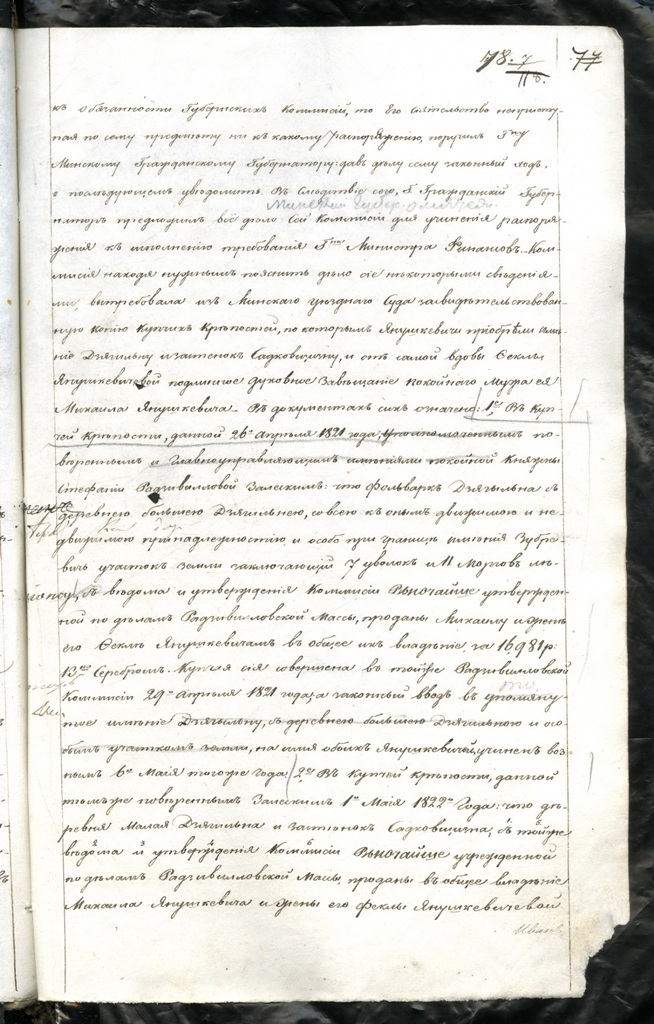 78. 7/118. 77
къ обязанности Губернскихъ Коммисій, то Его Сіятельство непристу-
пая по сему предмету ни къ какому распоряженію, поручилъ Гну
Минскому Гражданскому Губернатору: давъ дѣлу сему законный ходъ,
о послѣдующемъ увѣдомить. Въ слѣдствіе сего, Г. Гражданскій Губер-
наторъ предложилъ всё дѣло сей Коммисіи для учиненія распоря-
женія къ исполненію требованія Гна Министра Финансовъ. Ком-
мисія находя нужнымъ пояснить дѣло сіе нѣкоторыми свѣденія-
ми, вытребовала изъ Минскаго уезднаго Суда засвидѣтельствован-
ную копію Купчихъ Крѣпостей, по которымъ Янушкевичи пріобрѣли имѣ-
ніе Дзягильну и застенокъ Садковщизну, и отъ самой вдовы Ѳеклы
Янушкевичевой подлинное духовное Завѣщаніе покойнаго мужа ея
Михаила Янушкевича. Въ документахъ сихъ означено: 1е Въ Куп-
чей Крѣпости, данной 26го Апрѣля 1821 года, уполномоченнымъ по-
вѣреннымъ и Главноуправляющимъ имѣніями покойной Княжны
Стефаніи Радзивилловой Залескимъ: что Фольваркъ Дзягыльна съ
деревнею большою Дзягильною, со всею къ онымъ движимою и не-
движимою принадлежностію и особо при границѣ имѣнія Зубре-
вичъ участокъ земли заключающій 7 уволокъ и 11 Морговъ,
съ вѣдома и утвержденія Коммисіи Высочайше утвержден-
ной по дѣламъ Радзивилловской Массы, проданы Михаилу и женѣ
его Ѳеклѣ Янушкевичамъ въ общее ихъ владѣніе, за 16981 р:
Серебромъ. Купчая сія совершена въ тойже Радзивилловской
Коммисіи 29го Апрѣля 1821 года, а законный вводъ въ упомяну-
тое имѣніе Дзягильну, съ деревнею большою Дзягильною и осо-
бымъ участкомъ земли, на имя обоихъ Янушкевичей, учиненъ воз-
нымъ 6го Маія тогоже года. 2е Въ Купчей крѣпости, данной
тѣмъже повѣреннымъ Залескимъ 1го Маія 1822го Года: что де-
ревня Малая Дзягильна и застенокъ Садковщизна, съ тойже
вѣдома и утвержденія Коммисіи Высочайше учрежденной
по дѣламъ Радзивилловской Массы, проданы въ общее владѣніе
Михаила Янушкевича и жены его Феклы Янушкевичевой